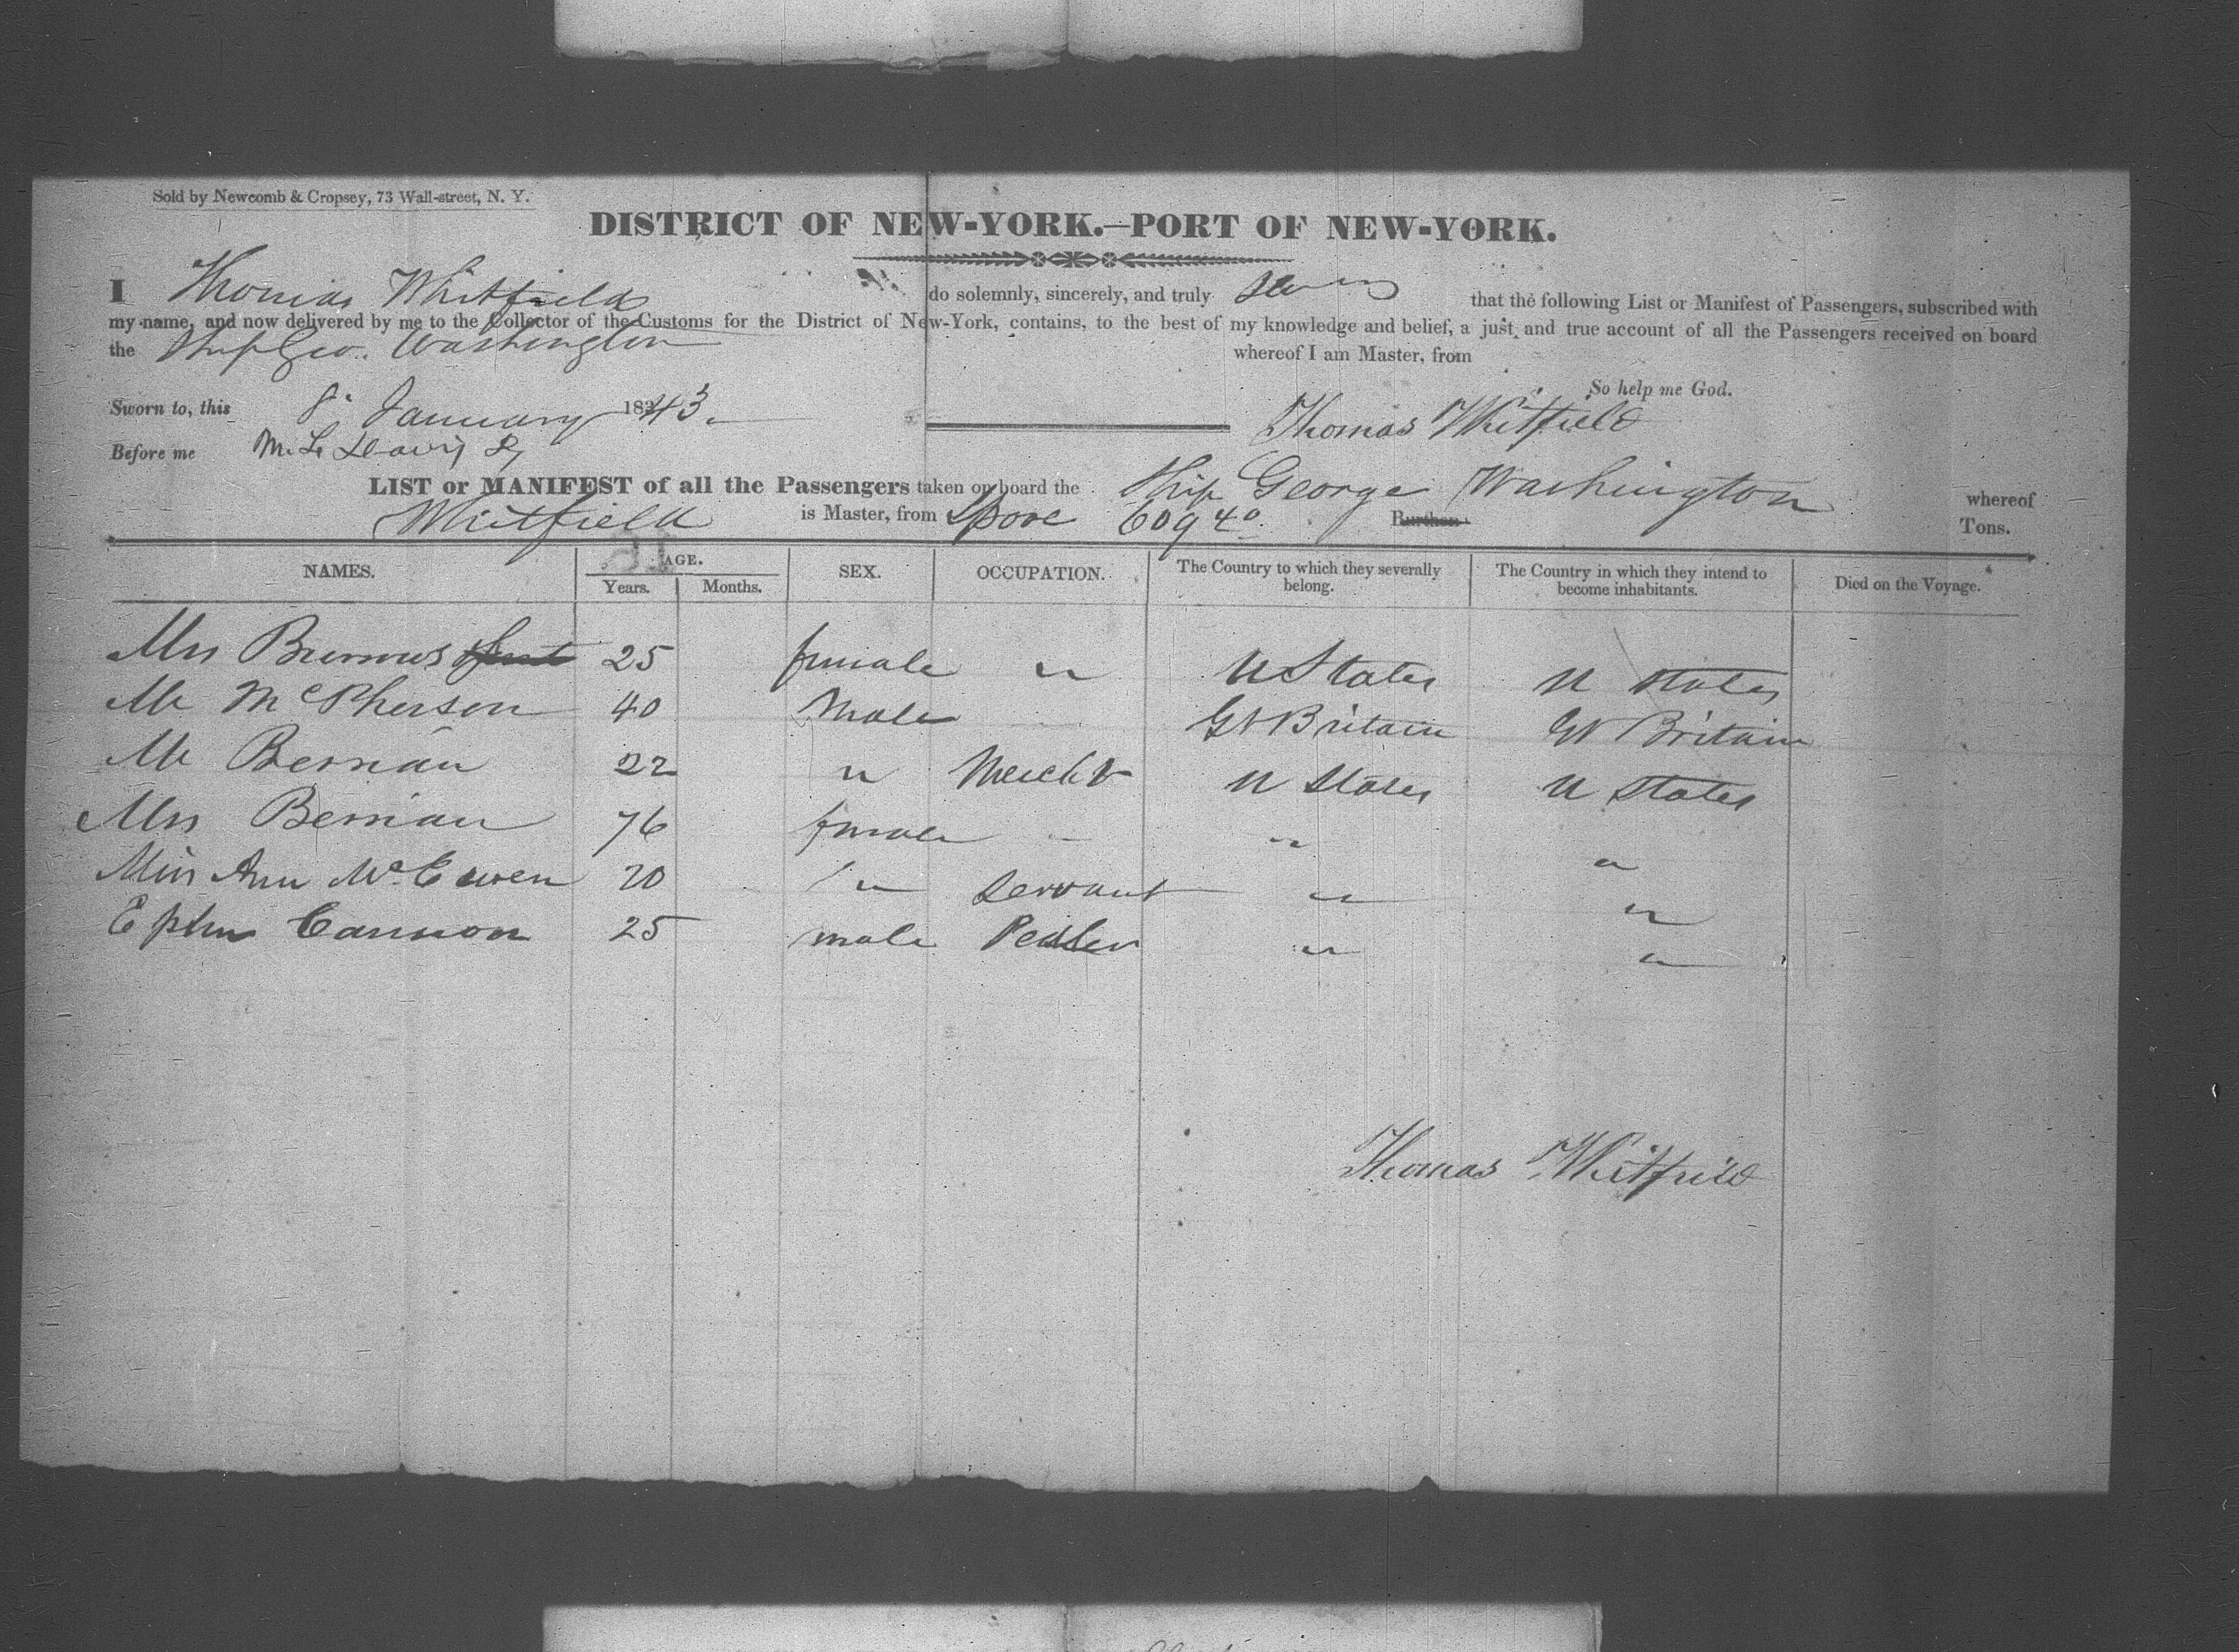 Sold by Newcomb & Cropsey, 73 Wall-street, N. Y.
DISTRICT OF NEW-YORK.—PORT OF NEW-YORK.
I Thomas Whitfield do solemnly, sincerely, and truly swear that the following List or Manifest of Passengers, subscribed with
my name, and now delivered by me to the Collector of the Customs for the District of New-York, contains, to the best of my knowledge and belief, a just and true account of all the Passengers received on board
the Ship Geo. Washington whereof I am Master, from
So help me God.
Sworn to, this 8 January 1843.
Thomas Whitfield
Before me M. L. Davis
LIST or MANIFEST of all the Passengers taken on board the Ship George Washington whereof
Whitfield is Master, from Lpool 609 40 Burthen Tons.
NAMES. AGE. SEX. OCCUPATION. The Country to which they severally belong. The Country in which they intend to become inhabitants. Died on the Voyage.
Years. Months.
Mrs 25 female " U States U States
Mr McPherson 40 Male Gt Britain Gt Britain
Mr Berrian 22 " Mercht U States U States
Mrs Berrian 76 female " "
Miss Ann McEwen 20 " Servant " "
Ephm Cannon 25 male Pedler " "
Thomas Whitfield